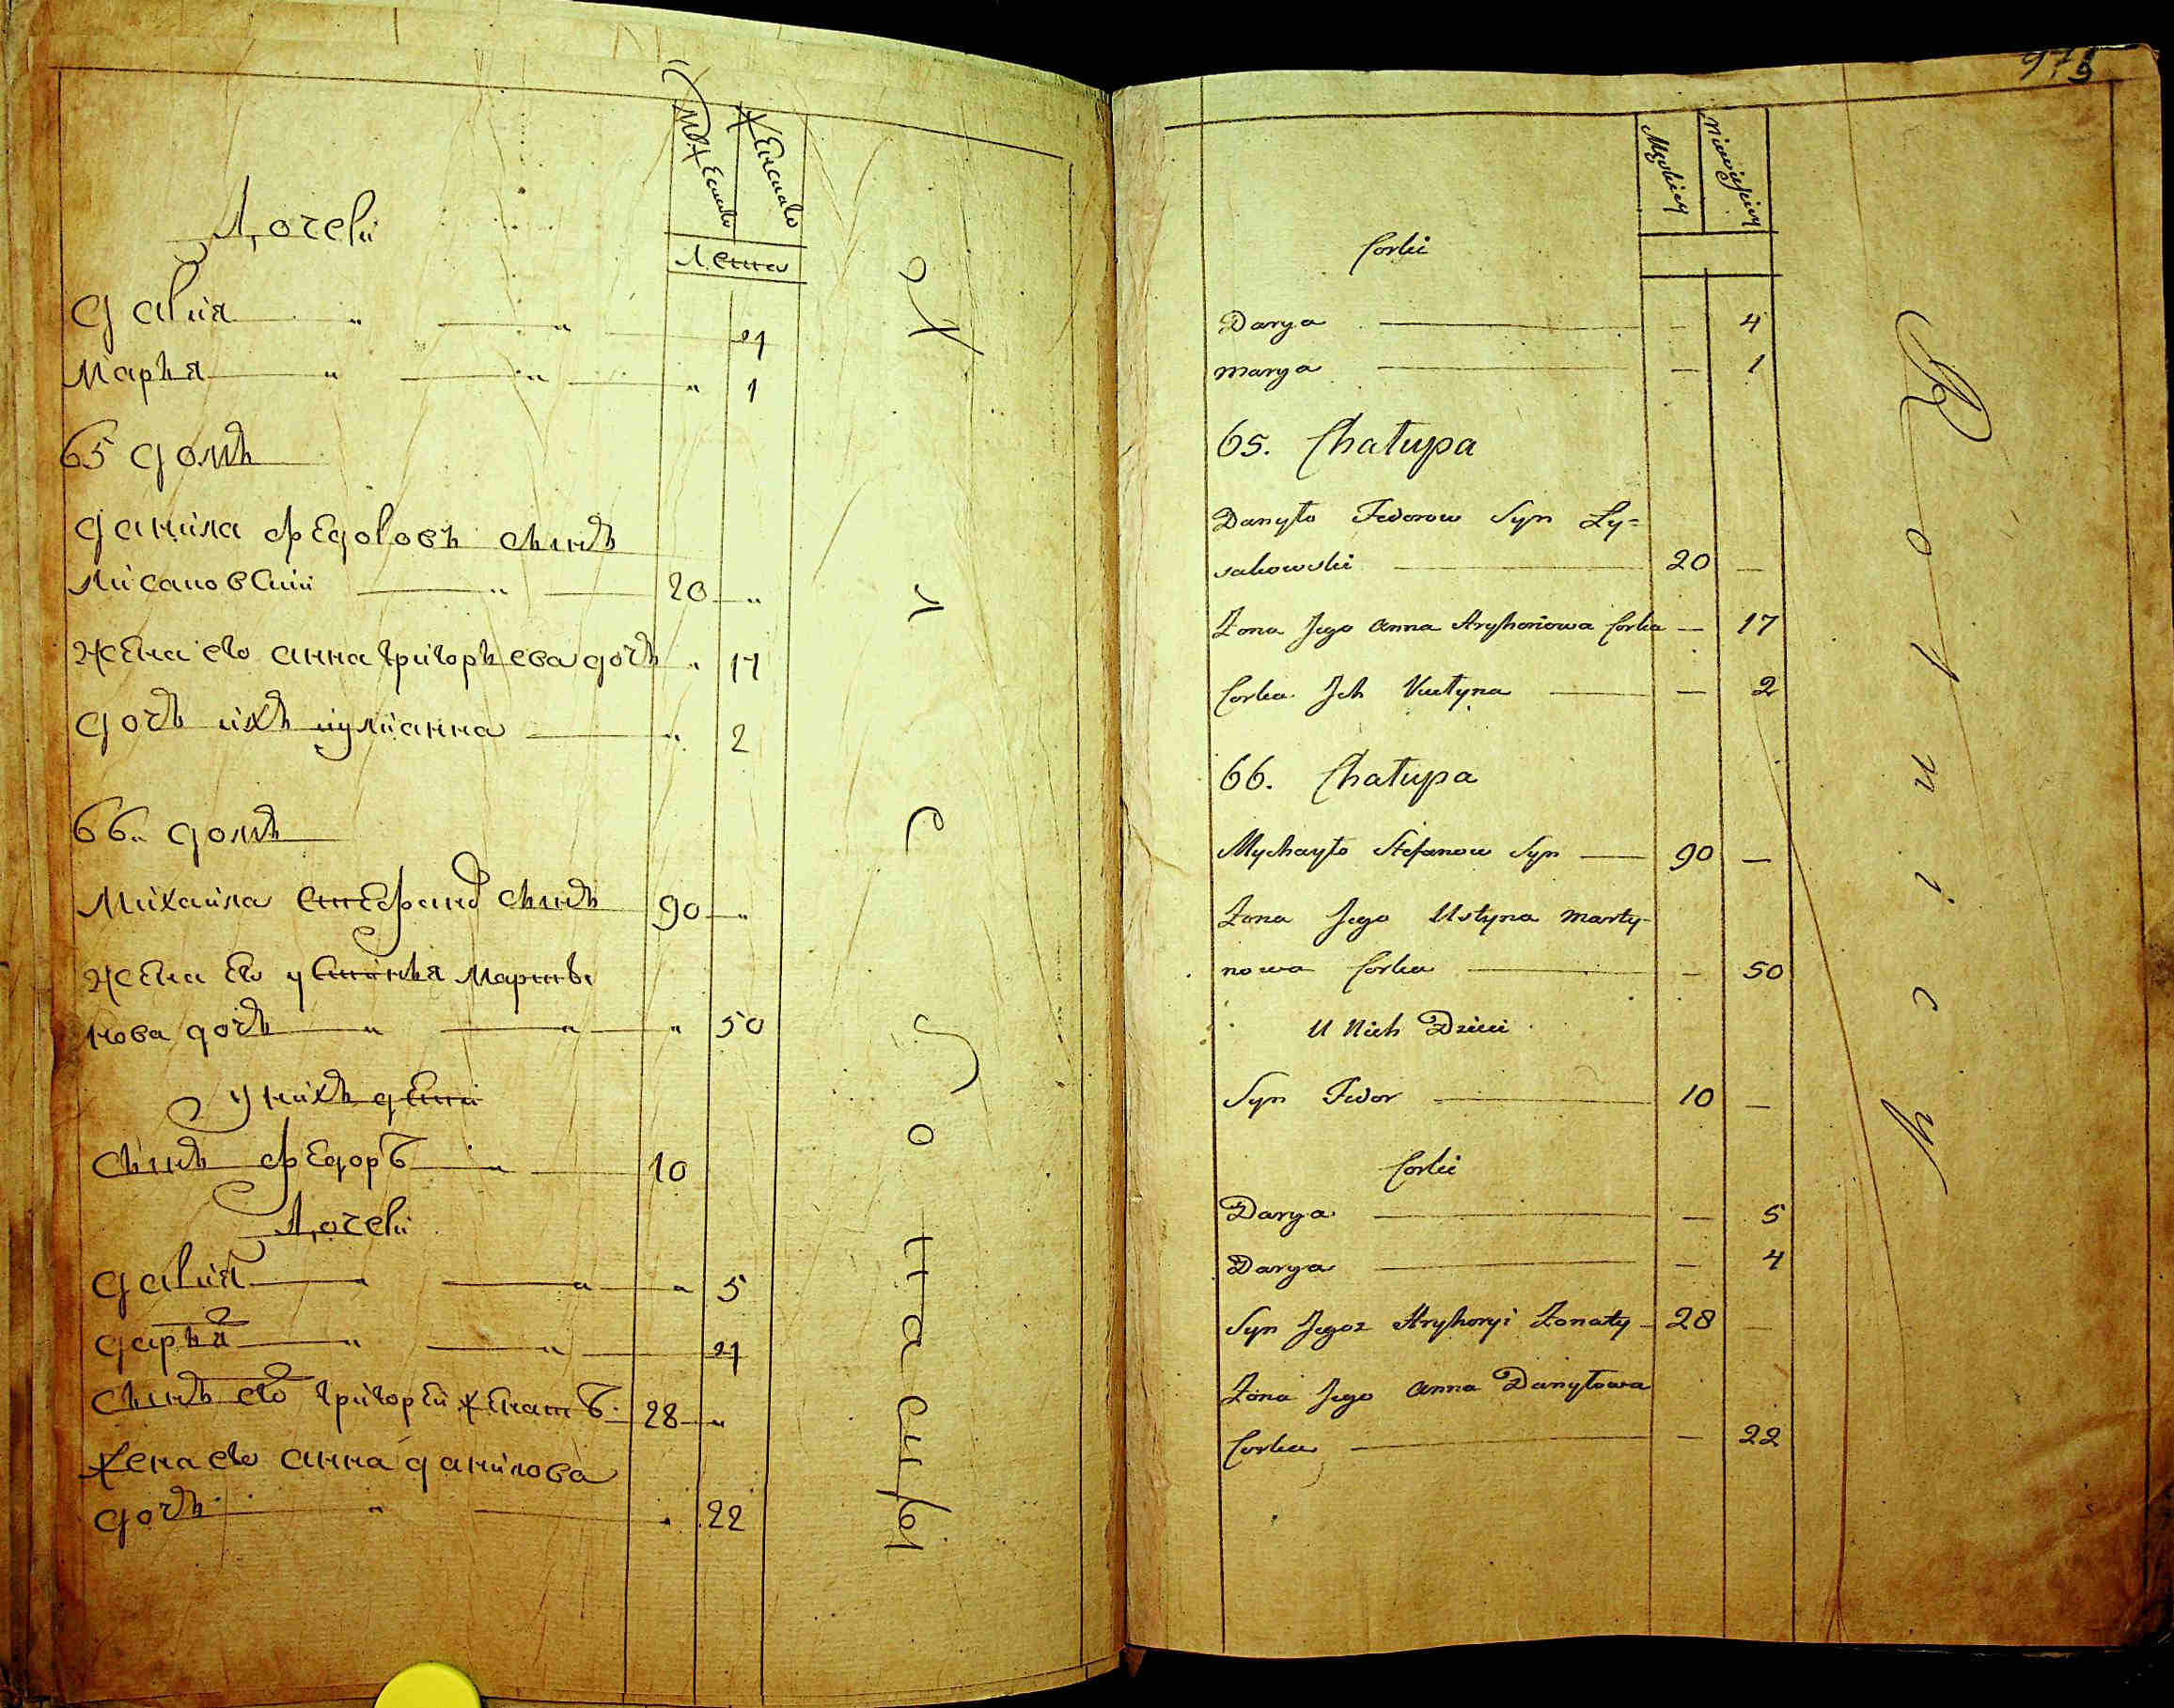 Мужеска
Женска
Лета
Дочеры
Дария " " 4
Марья " " " 1
65 домъ
Данила Федоровъ сынъ
Лисаковский " 20 "
Жена его Анна Григорьева дочь " 17
Дочь ихъ Иулианна " 2
66. домъ
Михаила Стефанов сынъ 90 "
Жена его Устинья Марты
нова дочь " " " 50
У нихъ дети
Сынъ Федоръ " 10
Дочеры
Дария " " " 5
Дарья 2 " " 4
Сынъ его 2 Григорей женатъ 28 "
Жена его Анна Данилова
дочь " . 22
Хлебопашцы
975
Męzkiey
Niewieściey
Corki
Darya — — 4
Marya — — 1
65. Chałupa
Danyło Fedorow Syn Ły=
sakowski — 20 —
Żona Jego Anna Hryhoriowa Corka — 17
Corka Ich — — 2
66. Chałupa
Mychayło Stefanow Syn — 90 —
Żona Jego Ustyna Marty-
nowa Corka — — 50
U Nich Dzieci
Syn Fedor — 10 —
Corki
Darya — — 5
Darya — — 4
Syn Jego 2 Hryhoryi Żonaty — 28 —
Żona Jego Anna Danyłowa
Corka — — 22
Rolnicy